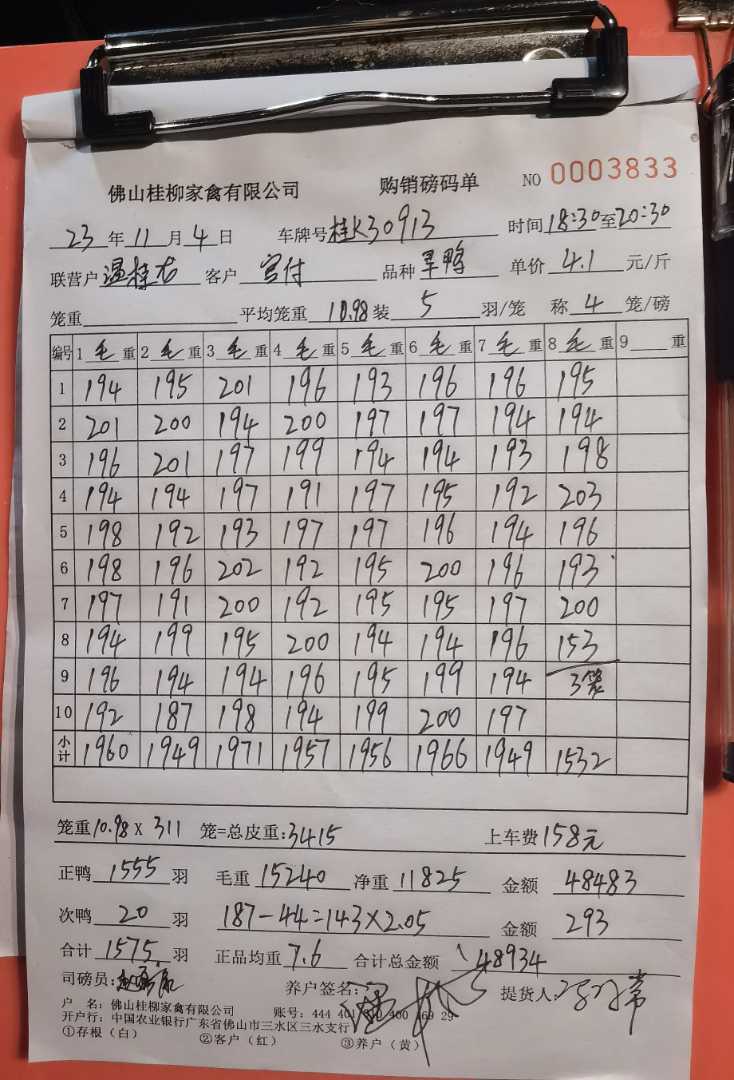 佛山桂柳家禽有限公司 购销磅码单 NO 0003833
23 年 11 月 4 日 车牌号 桂K30913 时间 18:30 至 20:30
联营户 温桂右 客户 宫付 品种 旱鸭 单价 4.1 元/斤
笼重 平均笼重 10.98 装 5 羽/笼 称 4 笼/磅
编号 1 毛 重 2 毛 重 3 毛 重 4 毛 重 5 毛 重 6 毛 重 7 毛 重 8 毛 重 9 重
1 194 195 201 196 193 196 196 195
2 201 200 194 200 197 197 194 194
3 196 201 197 199 194 194 193 198
4 194 194 197 191 197 195 192 203
5 198 192 193 197 197 196 194 196
6 198 196 202 192 195 200 196 193
7 197 191 200 192 195 195 197 200
8 194 199 195 200 194 194 196 153
9 196 194 194 196 195 199 194 3笼
10 192 187 198 194 199 200 197
小计 1960 1949 1971 1957 1956 1966 1949 1532
笼重 10.98 X 311 笼=总皮重: 3415 上车费 158元
正鸭 1555 羽 毛重 15240 净重 11825 金额 48483
次鸭 20 羽 187-44=143×2.05 金额 293
合计 1575 羽 正品均重 7.6 合计总金额 48934
司磅员: 养户签名: 提货人:
户 名: 佛山桂柳家禽有限公司 账号: 444 401 400 469 29
开户行: 中国农业银行广东省佛山市三水区三水支行
①存根（白） ②客户（红） ③养户（黄）